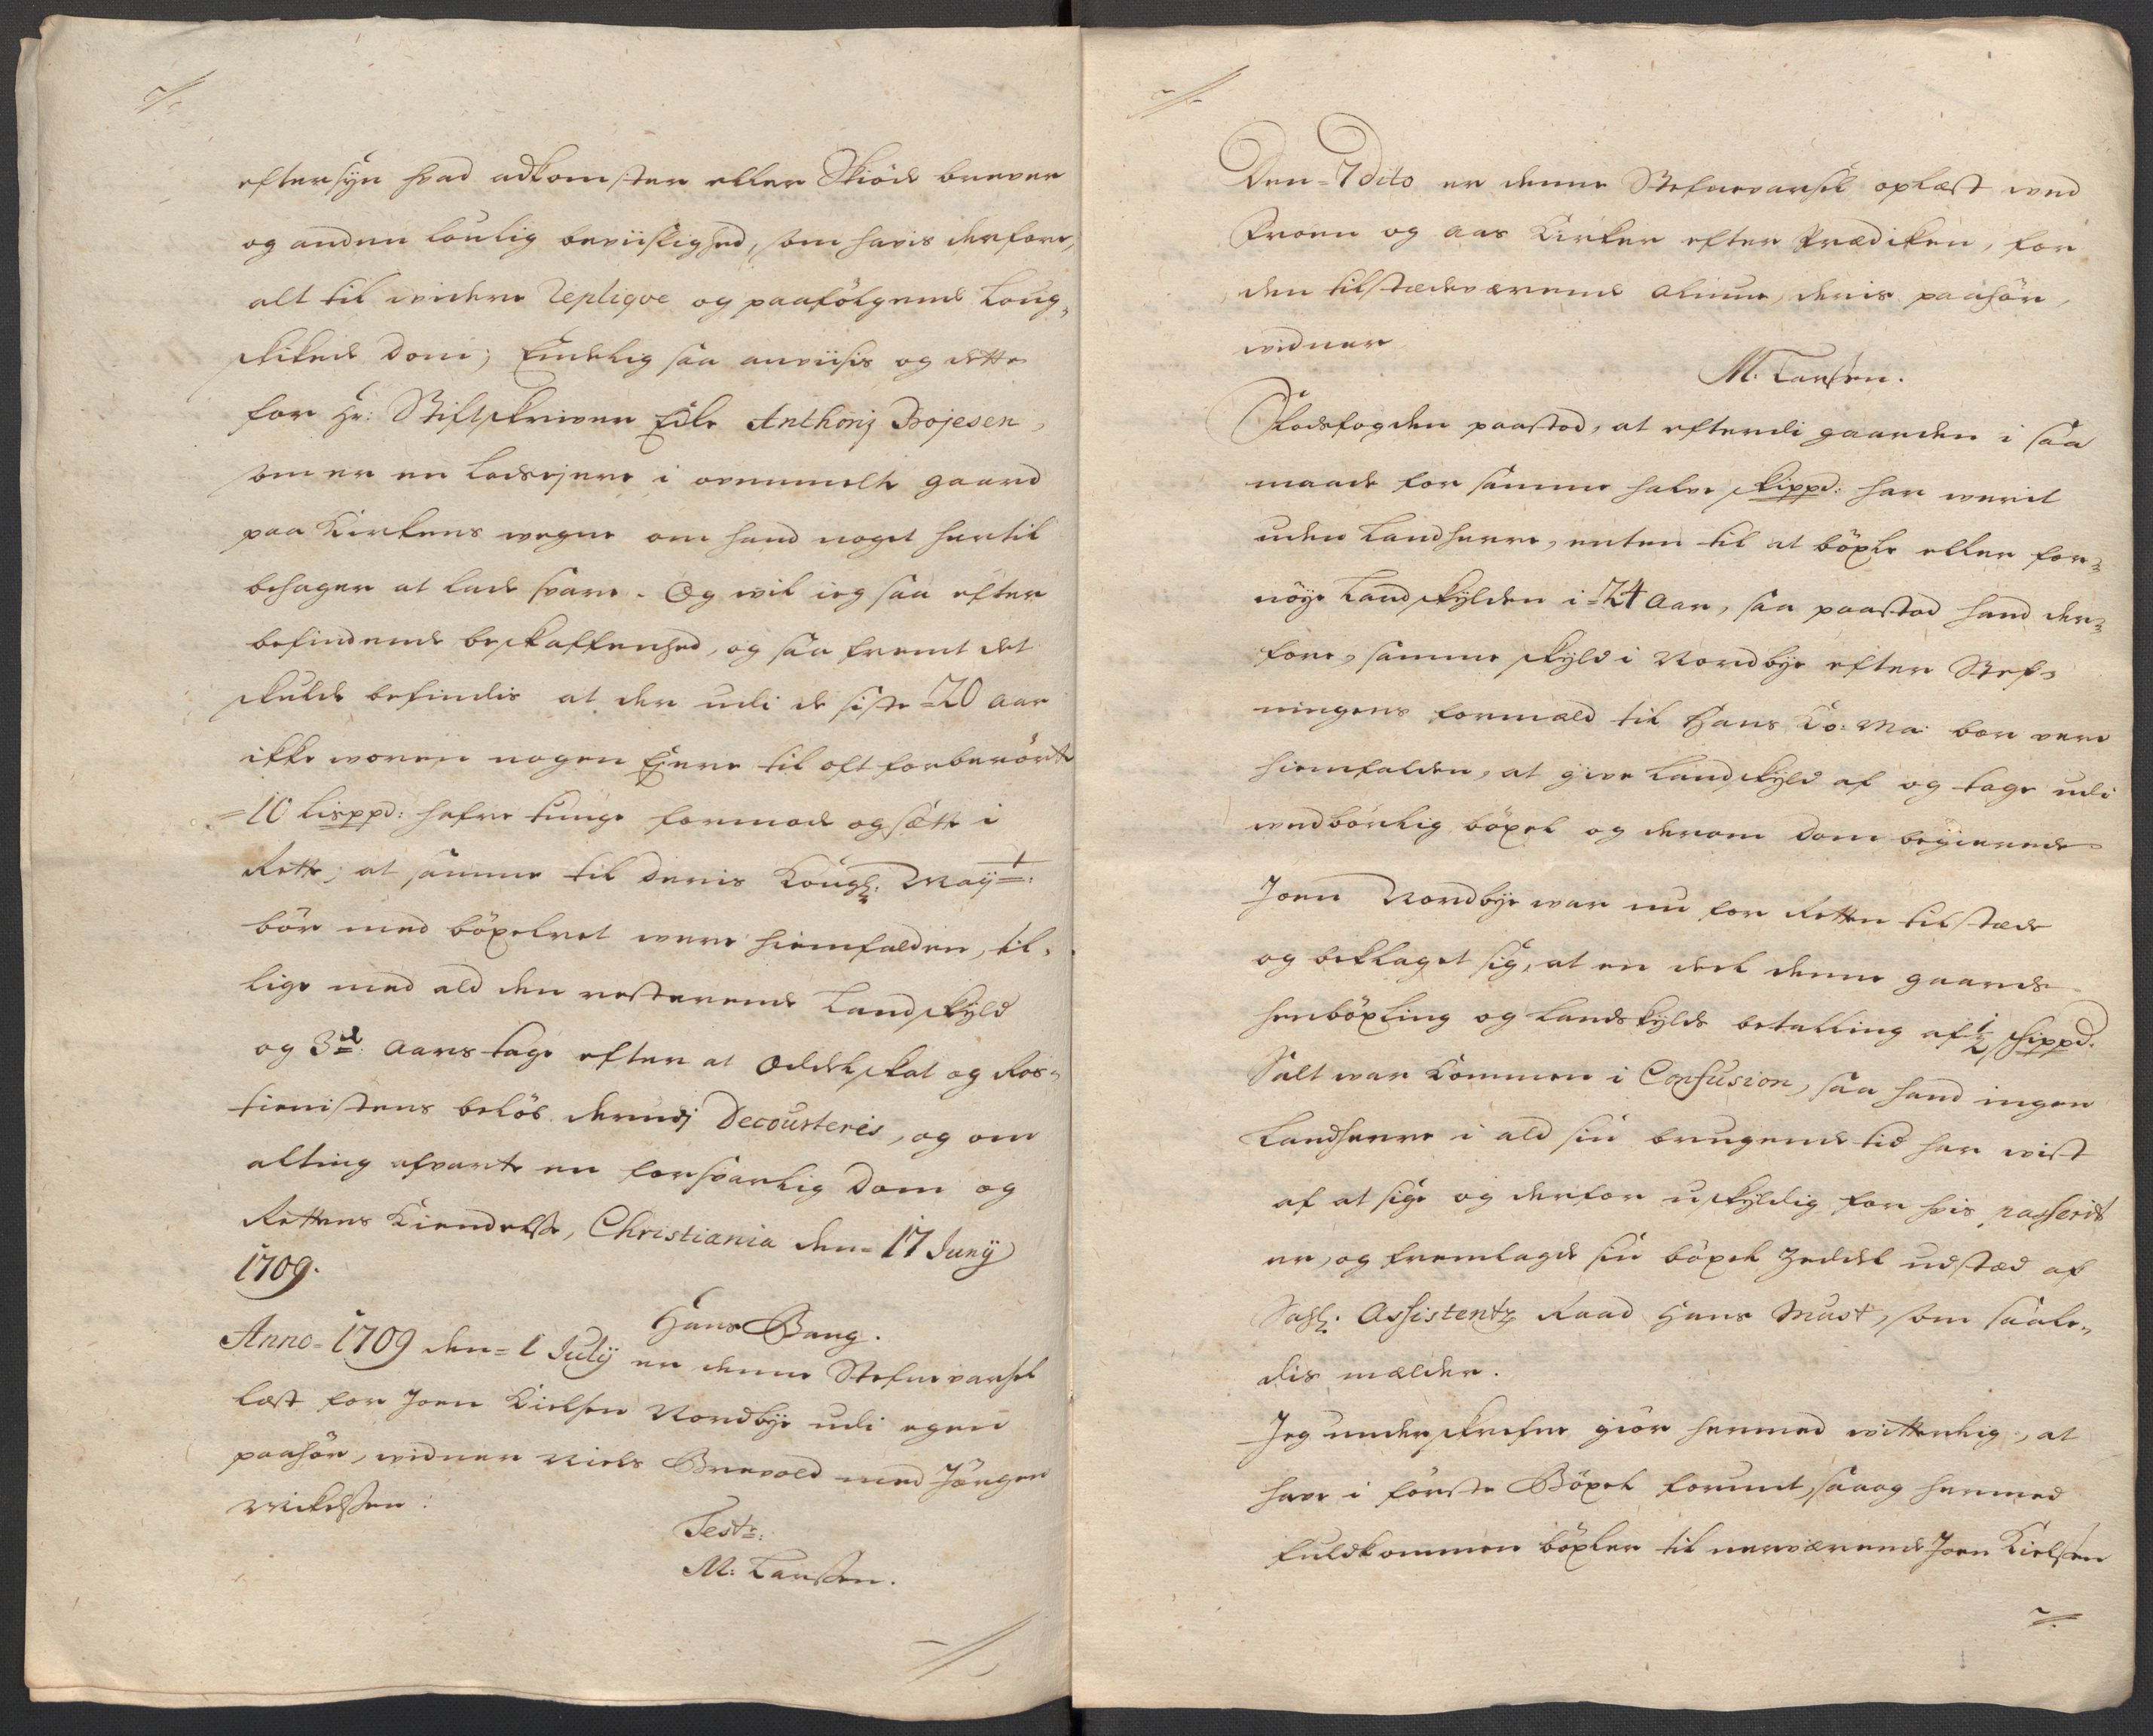 eftersyn hvad adkomster eller Skiöde brever
og anden loulig beviislighed, som havis derfore,
alt til videre Repliqve og paafölgende Loug-
skikede Dom; Endelig saa anviisis og dette
for Hr: Stiftskriver Edle Anthonj Bojesen,
som er en Lodsejere i ovenmelte gaard
paa Kirkens vegne om hand noget hertil
behager at lade svare. Og vil ieg saa efter
befindende beskaffenhed, og saa fremt det
skulde befindis at der udi de siste 20 aar
ikke voren nogen Ejere til oft forberörte
=10 Lisppd: hafre tunge formode og sætte i
Rette; at samme til Deris Kongl: Mayt:
bör med böxelret were hiemfalden, til-
lige med ald den resterende Landskyld
og 3de aars tage efter at Oddelskat og Ros-
tienistens belöb derudj Decourteris, og om
alting afvarte en forsvarlig Dom og
Rettens Kiendelse, Christiania den=17 Junij
1709.
Hans Bang.
Anno=1709 den=1 Julij er denne Stefnevarsel
læst for Joen Kielsen Nordbye udi egen
paahör, vidner Niels Brevold med Jörgen
Mickelsen:
Test:
M: Larssen.
Den=7 dito er denne Stefnevarsel oplæst ved
Kroen og aas Kirker efter Prædiken, for
den tilstædeværende almue, deris paahör,
vidner
M. Larsen.
Flodsfogden paastod, at efterdi gaarden i saa
maade for samme halve skippd: har werit
uden Landherre, enten til at böxle eller for-
nöye Landskylden i=24 aar, saa paastod hand der-
fore, samme skyld i Nordbye efter Stef-
ningens formæld til Hans Ko: Ma: bör vere
hiemfalden, at give Landskyld af og tage udi
wedbörlig böxel og derom dom begierede
Joen Nordbye war nu for Retten tilstæde
og beklaget sig, at en deel denne gaards
henböxling og Landskylds betalling af ½ skippd.
Salt war Kommen i Confusion, saa hand ingen
Landherre i ald sin brugende tid har wist
af at sige og derfor uskyldig for hvis passerit
er, og fremlagde sin böxel Zeddel udstæd af
Sahl: Assistentz Raad Hans Must, som saale-
dis melder.
Jeg underskrefne giör hermed witterlig, at
have i förste Böxel forundt, saaog hermed
fuldkommen böxler til nerværende Joen Kielsen